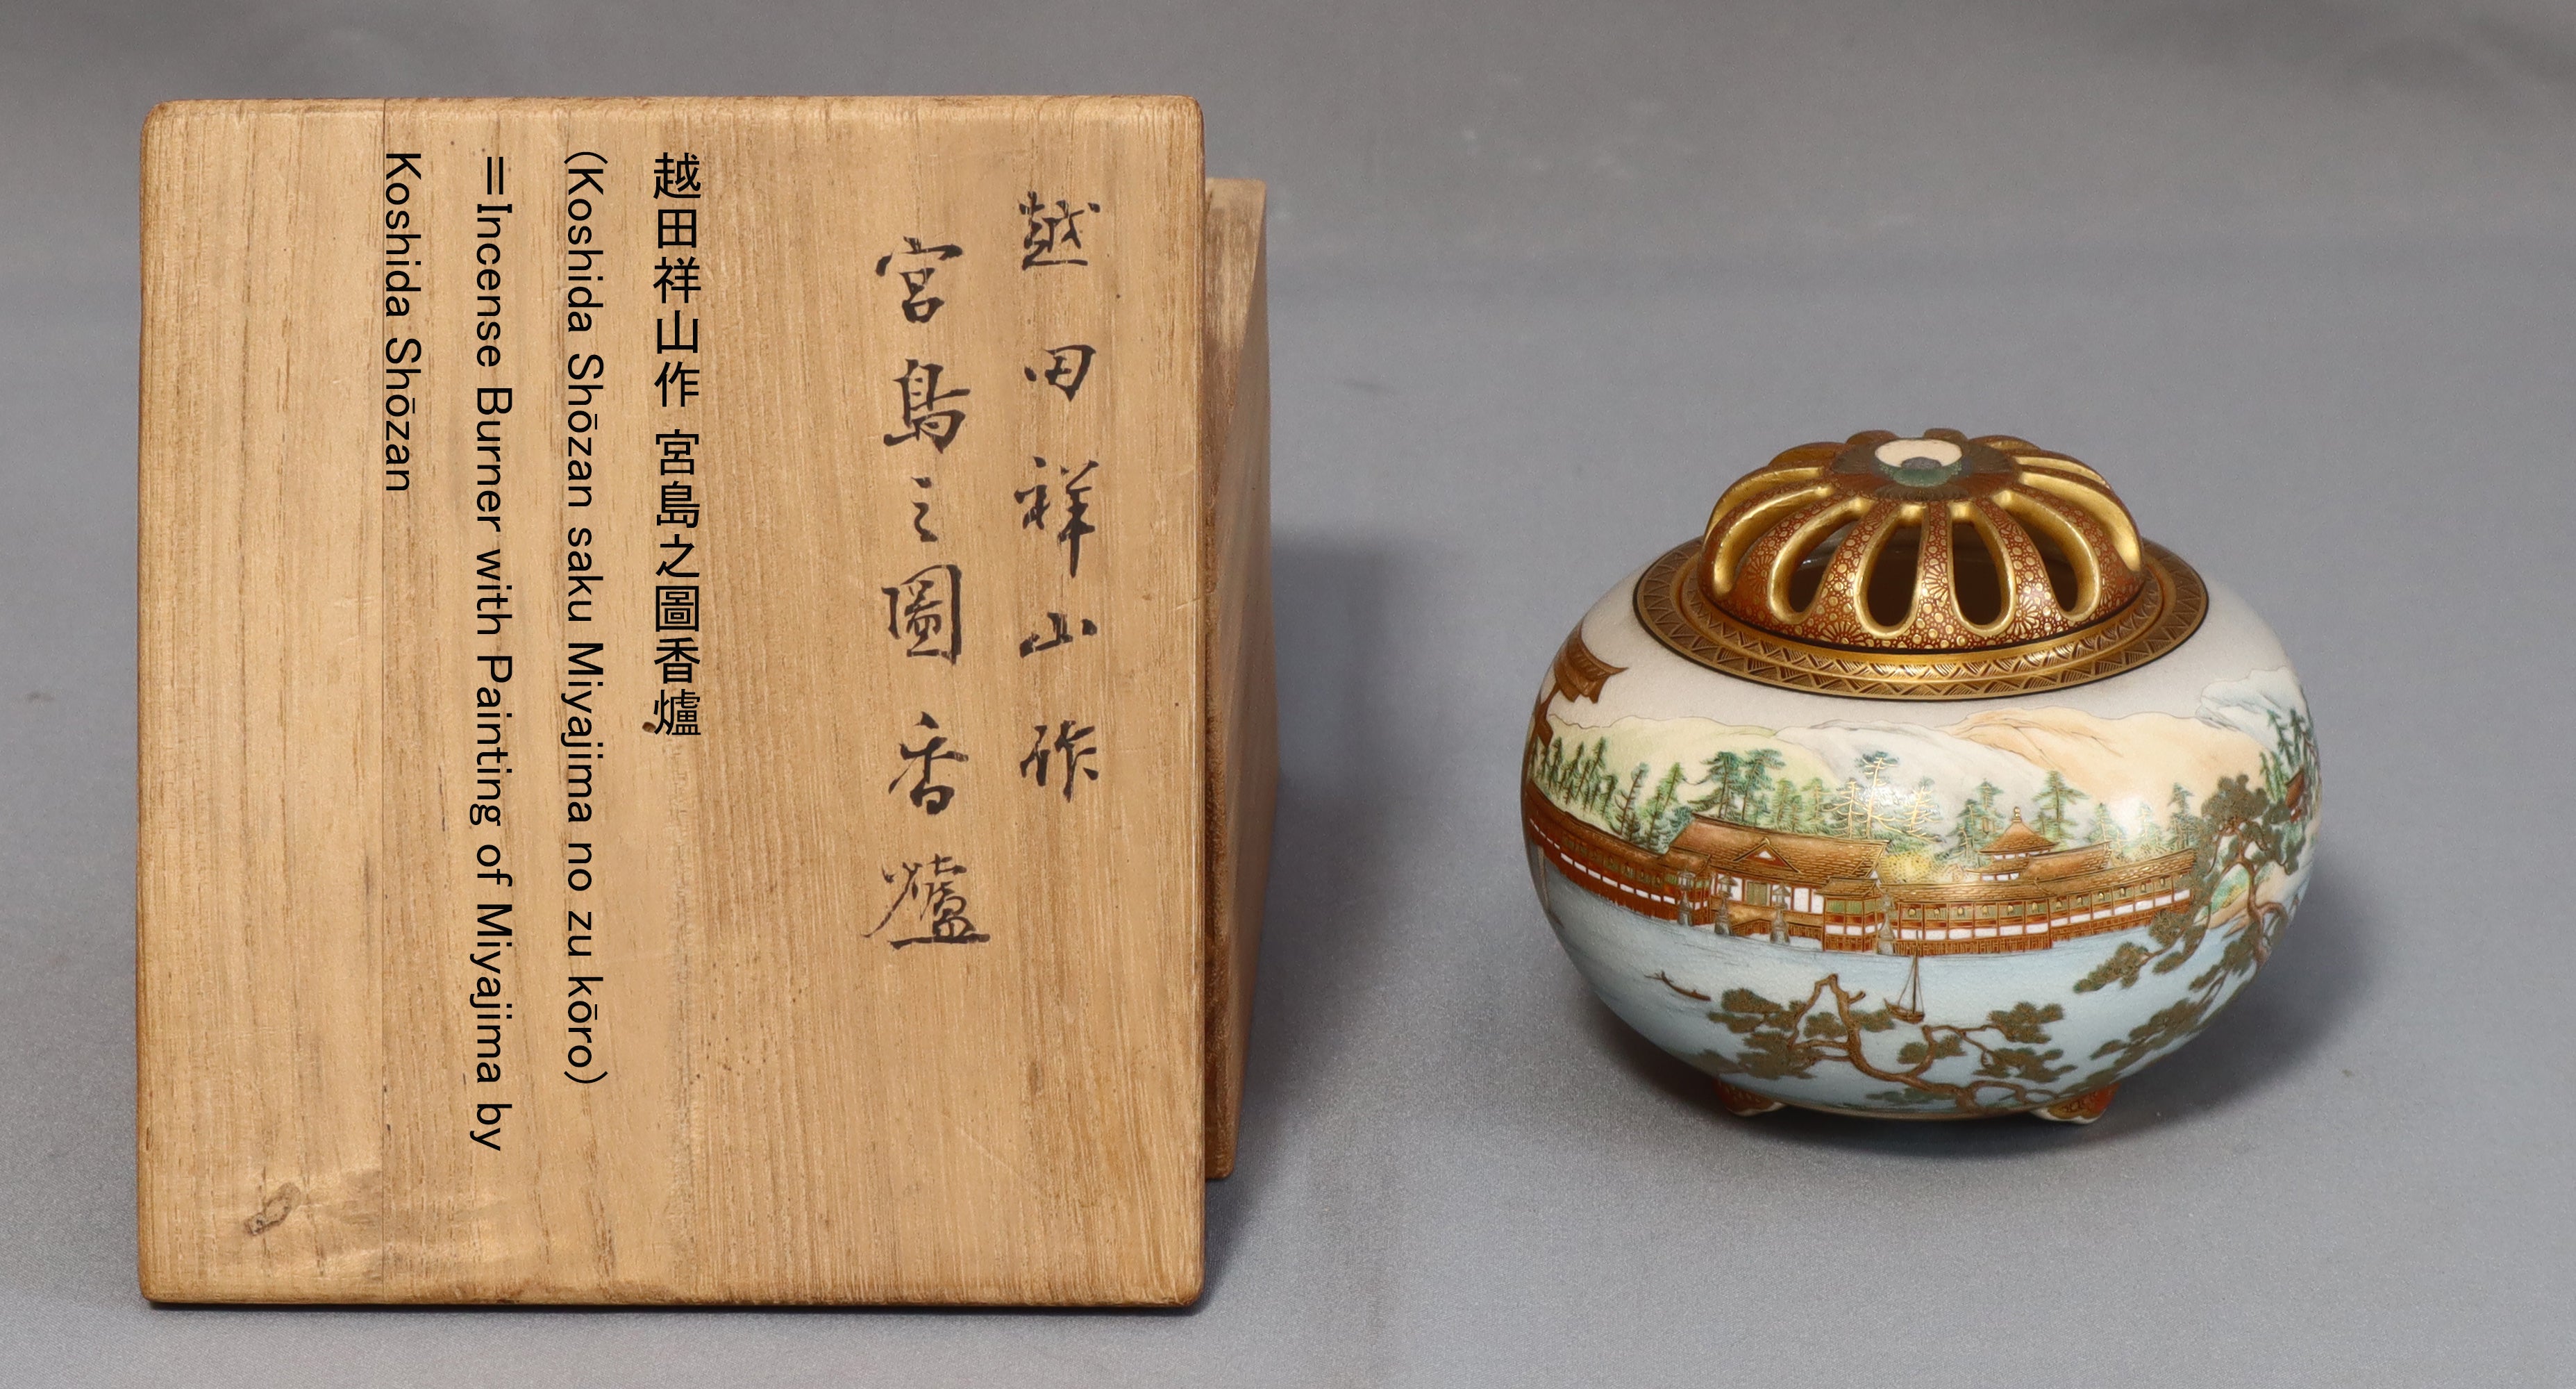 越田祥山作
宮島之圖香爐
越田祥山作 宮島之圖香爐
(Koshida Shōzan saku Miyajima no zu kōro)
=Incense Burner with Painting of Miyajima by
Koshida Shōzan